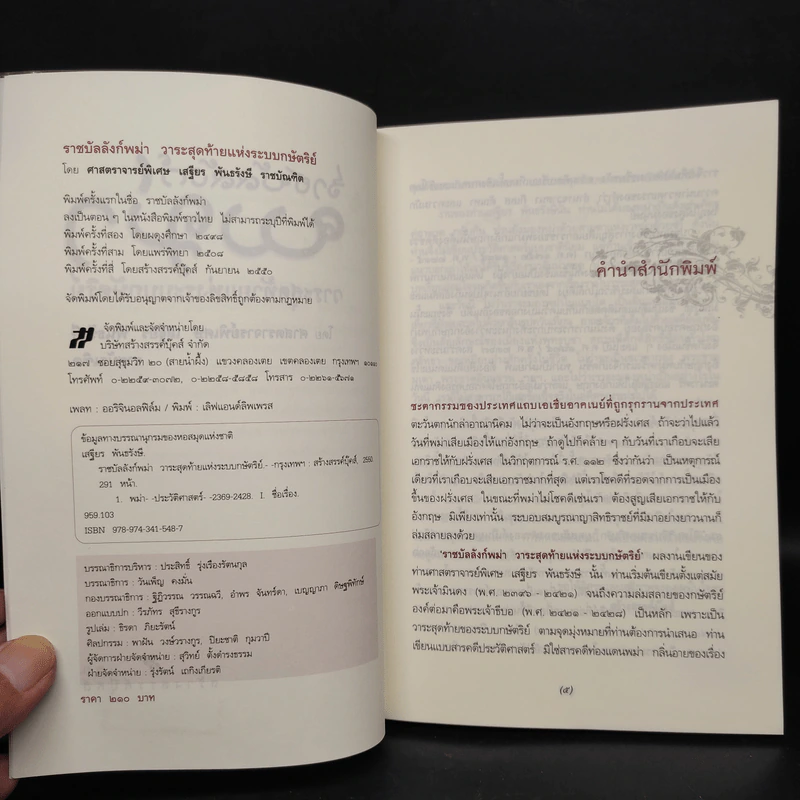 ราชบัลลังก์พม่า วาระสุดท้ายแห่งระบบกษัตริย์
โดย ศาสตราจารย์พิเศษ เสฐียร พันธรังษี ราชบัณฑิต
พิมพ์ครั้งแรกในชื่อ ราชบัลลังก์พม่า
ลงเป็นตอน ๆ ในหนังสือพิมพ์ชาวไทย ไม่สามารถระบุปีที่พิมพ์ได้
พิมพ์ครั้งที่สอง โดยผดุงศึกษา ๒๔๙๘
พิมพ์ครั้งที่สาม โดยแพร่พิทยา ๒๕๐๘
พิมพ์ครั้งที่สี่ โดยสร้างสรรค์บุ๊คส์ กันยายน ๒๕๕๐
จัดพิมพ์โดยได้รับอนุญาตจากเจ้าของลิขสิทธิ์ถูกต้องตามกฎหมาย
จัดพิมพ์และจัดจำหน่ายโดย
บริษัทสร้างสรรค์บุ๊คส์ จำกัด
๒๑๗ ซอยสุขุมวิท ๒๐ (สายน้ำผึ้ง) แขวงคลองเตย เขตคลองเตย กรุงเทพฯ ๑๐๑๑๐
โทรศัพท์ ๐-๒๒๕๙-๓๐๗๒, ๐-๒๒๕๘-๕๘๕๘ โทรสาร ๐-๒๒๖๑-๕๖๗๑
เพลท : ออริจินอลฟิล์ม / พิมพ์ : เลิฟแอนด์ลิพเพรส
ข้อมูลทางบรรณานุกรมของหอสมุดแห่งชาติ
เสฐียร พันธรังษี.
ราชบัลลังก์พม่า วาระสุดท้ายแห่งระบบกษัตริย์.- -กรุงเทพฯ : สร้างสรรค์บุ๊คส์, 2550
291 หน้า.
1. พม่า- -ประวัติศาสตร์- -2369-2428. I. ชื่อเรื่อง.
959.103
ISBN 978-974-341-548-7
บรรณาธิการบริหาร : ประสิทธิ์ รุ่งเรืองรัตนกุล
บรรณาธิการ : วันเพ็ญ คงมั่น
กองบรรณาธิการ : ฐิฏิวรรณ วรรณฉวี, อำพร จันทร์ดา, เบญญาภา ดิษฐพิทักษ์
ออกแบบปก : วีรภัทร สุธีรางกูร
รูปเล่ม : ธิรดา ภิยะรัตน์
ศิลปกรรม : พาฝัน วงษ์วรางกูร, ปิยะชาติ กุมวาปี
ผู้จัดการฝ่ายจัดจำหน่าย : สุวิทย์ ตั้งดำรงธรรม
ฝ่ายจัดจำหน่าย : รุ่งรัตน์ เถกิงเกียรติ
ราคา ๒๑๐ บาท
คำนำสำนักพิมพ์
ชะตากรรมของประเทศแถบเอเชียอาคเนย์ที่ถูกรุกรานจากประเทศ
ตะวันตกนักล่าอาณานิคม ไม่ว่าจะเป็นอังกฤษหรือฝรั่งเศส ถ้าจะว่าไปแล้ว
วันที่พม่าเสียเมืองให้แก่อังกฤษ ถ้าดูไปก็คล้าย ๆ กับวันที่เราเกือบจะเสีย
เอกราชให้กับฝรั่งเศส ในวิกฤตการณ์ ร.ศ. ๑๑๒ ซึ่งว่ากันว่า เป็นเหตุการณ์
เดียวที่เราเกือบจะเสียเอกราชมากที่สุด แต่เราโชคดีที่รอดจากการเป็นเมือง
ขึ้นของฝรั่งเศส ในขณะที่พม่าไม่โชคดีเช่นเรา ต้องสูญเสียเอกราชให้กับ
อังกฤษ มิเพียงเท่านั้น ระบอบสมบูรณาญาสิทธิราชย์ที่มีมาอย่างยาวนานก็
ล่มสลายลงด้วย
'ราชบัลลังก์พม่า วาระสุดท้ายแห่งระบบกษัตริย์' ผลงานเขียนของ
ท่านศาสตราจารย์พิเศษ เสฐียร พันธรังษี นั้น ท่านเริ่มต้นเขียนตั้งแต่สมัย
พระเจ้ามินดง (พ.ศ. ๒๓๙๖ - ๒๔๒๑) จนถึงความล่มสลายของกษัตริย์
องค์ต่อมาคือพระเจ้าธีบอ (พ.ศ. ๒๔๒๑ - ๒๔๒๘) เป็นหลัก เพราะเป็น
วาระสุดท้ายของระบบกษัตริย์ ตามจุดมุ่งหมายที่ท่านต้องการนำเสนอ ท่าน
เขียนแบบสารคดีประวัติศาสตร์ มิใช่สารคดีท่องแดนพม่า กลิ่นอายของเรื่อง
(๕)